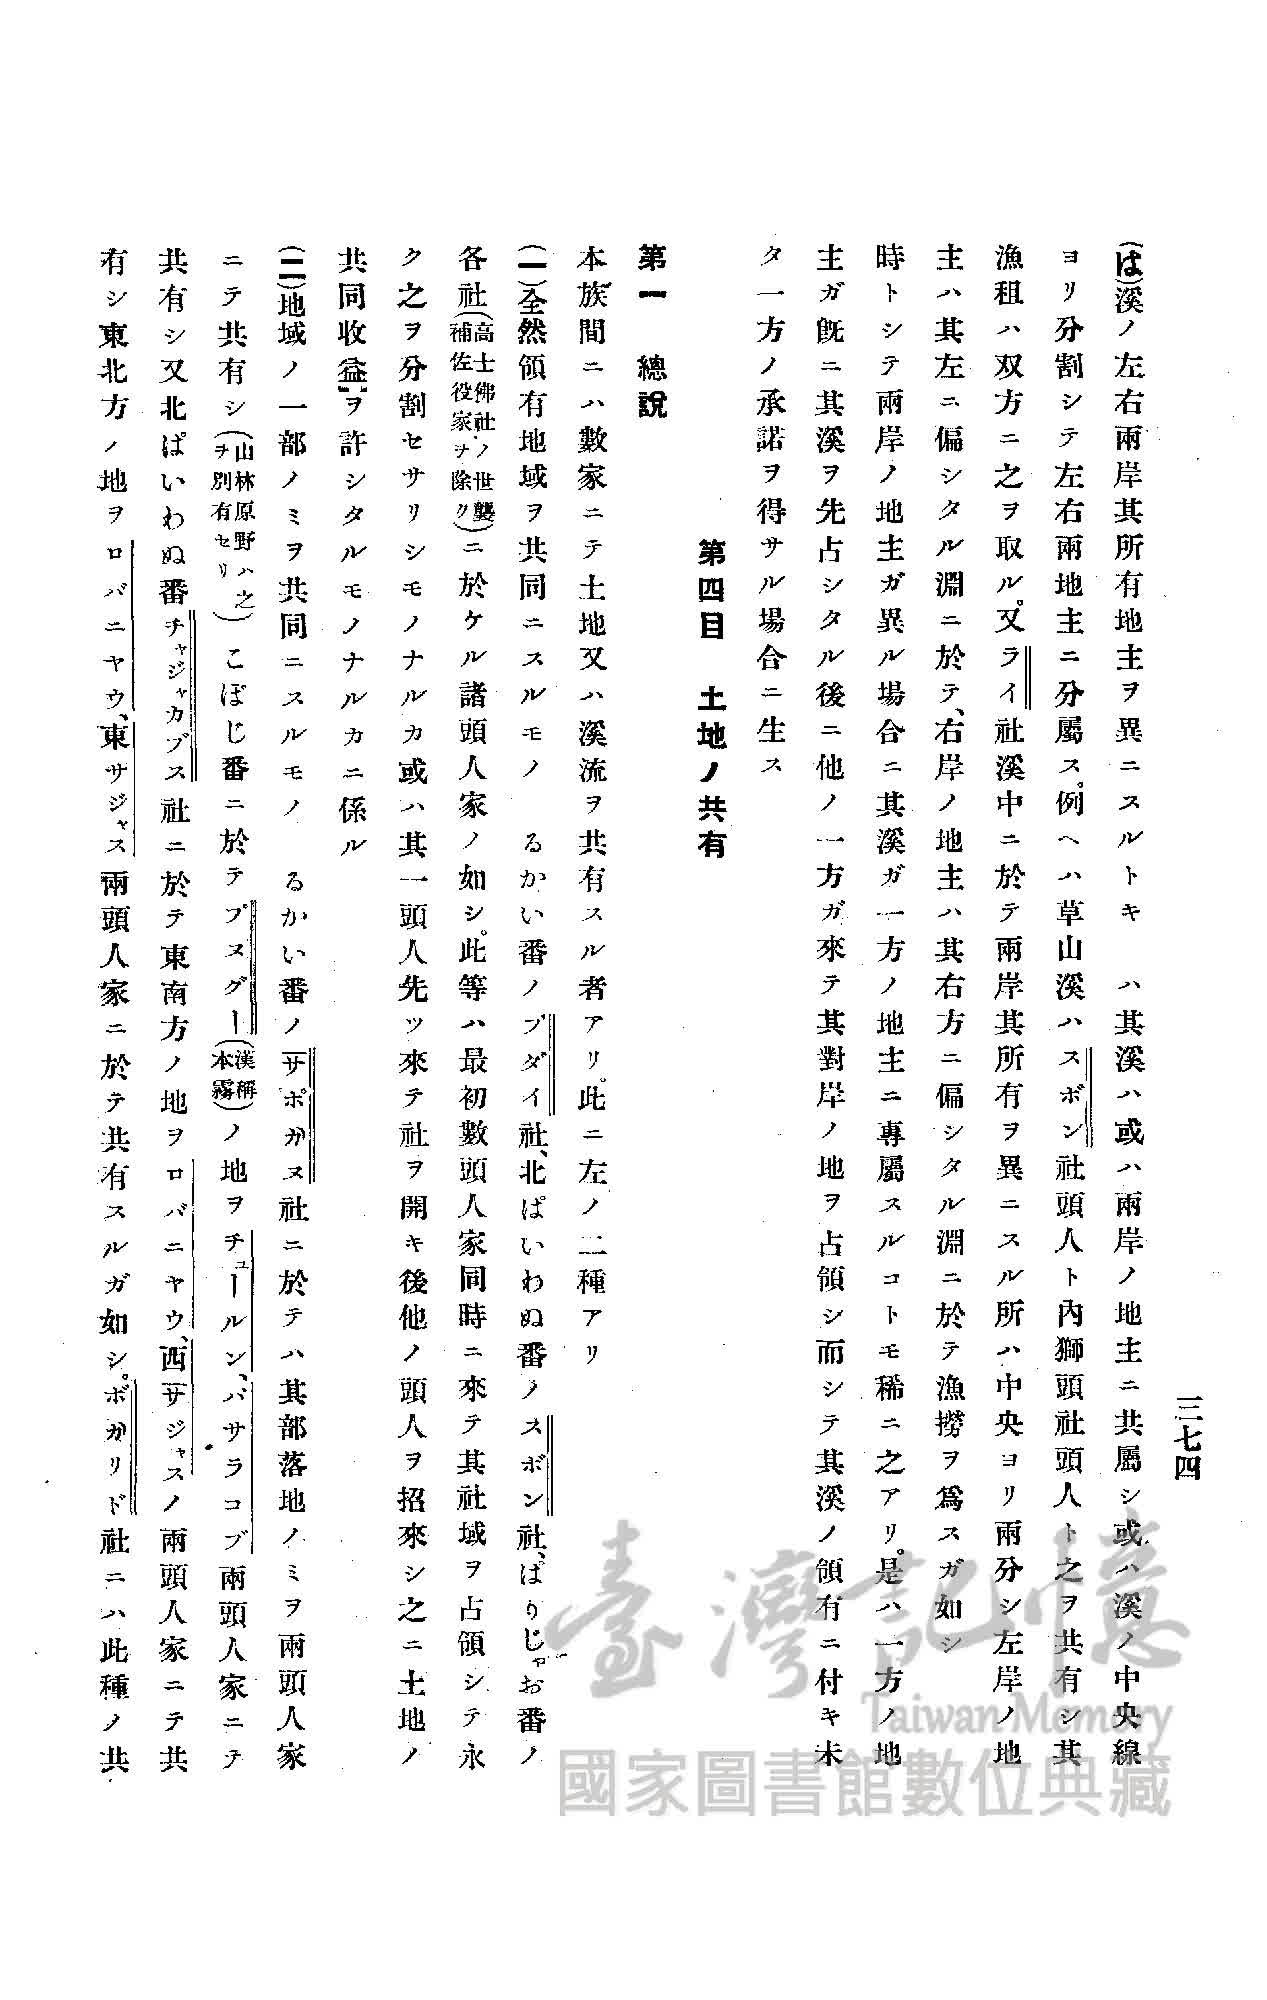 三七四
(は)溪ノ左右兩岸其所有地主ヲ異ニスルトキ　ハ其溪ハ或ハ兩岸ノ地主ニ共屬シ或ハ溪ノ中央線
ヨリ分割シテ左右兩地主ニ分屬ス。例ヘハ草山溪ハスボン社頭人ト內獅頭社頭人ト之ヲ共有シ其
漁租ハ双方ニ之ヲ取ル。又ライ社溪中ニ於テ兩岸其所有ヲ異ニスル所ハ中央ヨリ兩分シ左岸ノ地
主ハ其左ニ偏シタル淵ニ於テ、右岸ノ地主ハ其右方ニ偏シタル淵ニ於テ漁撈ヲ爲スガ如シ
時トシテ兩岸ノ地主ガ異ル場合ニ其溪ガ一方ノ地主ニ專屬スルコトモ稀ニ之アリ。是ハ一方ノ地
主ガ旣ニ其溪ヲ先占シタル後ニ他ノ一方ガ來テ其對岸ノ地ヲ占領シ而シテ其溪ノ領有ニ付キ未
タ一方ノ承諾ヲ得サル場合ニ生ス
第四目　土地ノ共有
第一　總說
本族間ニハ數家ニテ土地又ハ溪流ヲ共有スル者アリ。此ニ左ノ二種アリ
(一)全然領有地域ヲ共同ニスルモノ　るかい番ノブダイ社、北ぱいわぬ番ノスボン社、ぱりじゃお番ノ
各社(高士佛社ノ世襲補佐役家ヲ除ク)ニ於ケル諸頭人家ノ如シ。此等ハ最初數頭人家同時ニ來テ其社域ヲ占領シテ永
ク之ヲ分割セサリシモノナルカ或ハ其一頭人先ツ來テ社ヲ開キ後他ノ頭人ヲ招來シ之ニ土地ノ
共同收益ヲ許シタルモノナルカニ係ル
(二)地域ノ一部ノミヲ共同ニスルモノ　るかい番ノサポガヌ社ニ於テハ其部落地ノミヲ兩頭人家
ニテ共有シ(山林原野ハ之ヲ別有セリ)こぼじ番ニ於テプヌグー(漢稱本霧)ノ地ヲチュールン、バサラコブ兩頭人家ニテ
共有シ又北ぱいわぬ番チャジャカブス社ニ於テ東南方ノ地ヲロバニヤウ、西サジャスノ兩頭人家ニテ共
有シ東北方ノ地ヲロバニヤウ、東サジャス兩頭人家ニ於テ共有スルガ如シ。ボガリド社ニハ此種ノ共
臺灣記憶
Taiwan Memory
國家圖書館數位典藏